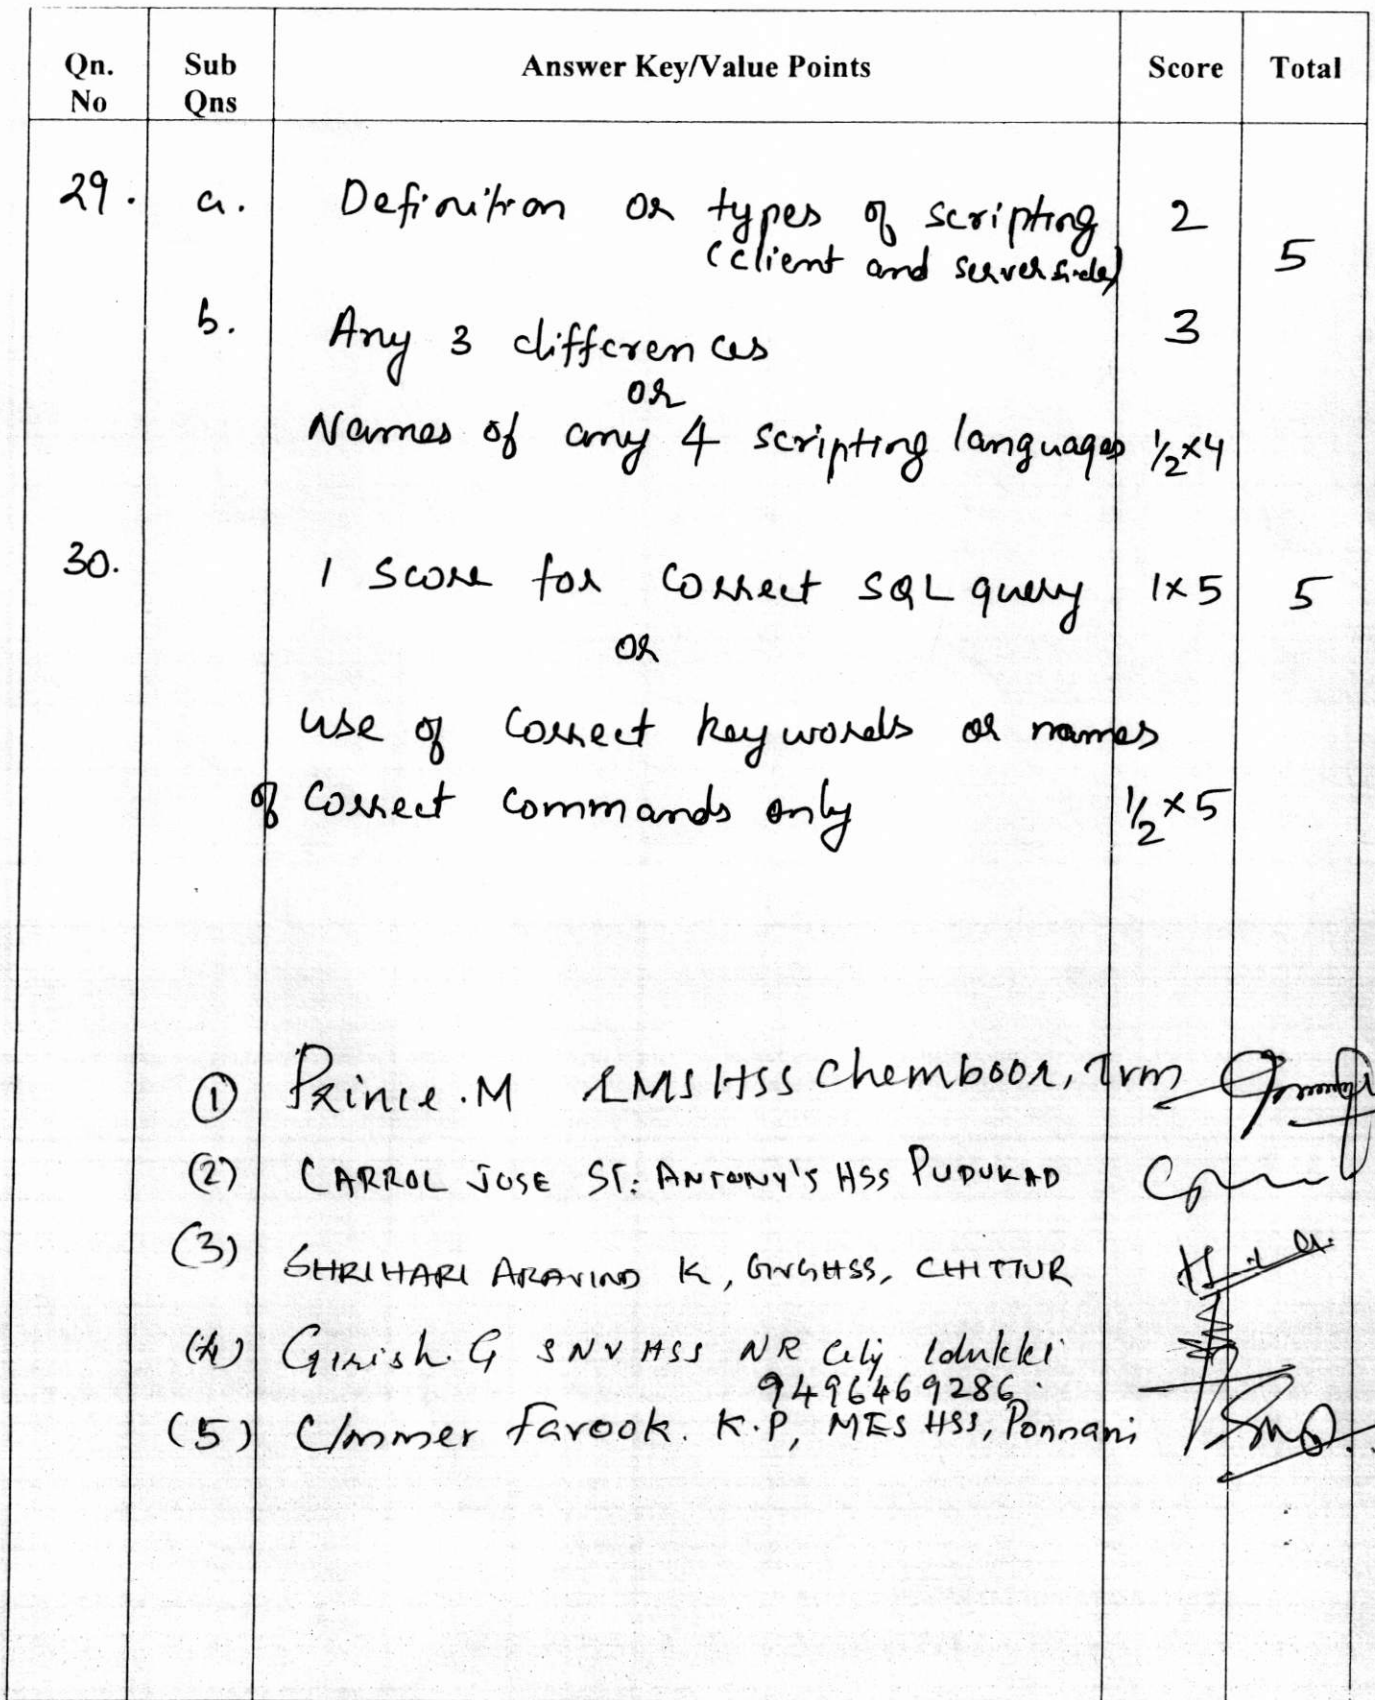 Qn. No Sub Qns Answer Key/Value Points Score Total
29. a. Definition or types of scripting 2
(client and server side) 5
b. Any 3 differences 3
or
Names of any 4 scripting languages ½×4
30. 1 score for correct SQL query 1×5 5
or
use of correct keywords or names
of correct commands only ½×5
① Prince.M LMS HSS Chemboor, Tvm
(2) CARROL JOSE ST. ANTONY'S HSS PUDUKAD
(3) SHRIHARI ARAVIND K, GVGHSS, CHITTUR
(4) Girish.G SNV HSS NR City Idukki
9496469286.
(5) Ummer Farook. K.P, MES HSS, Ponnani